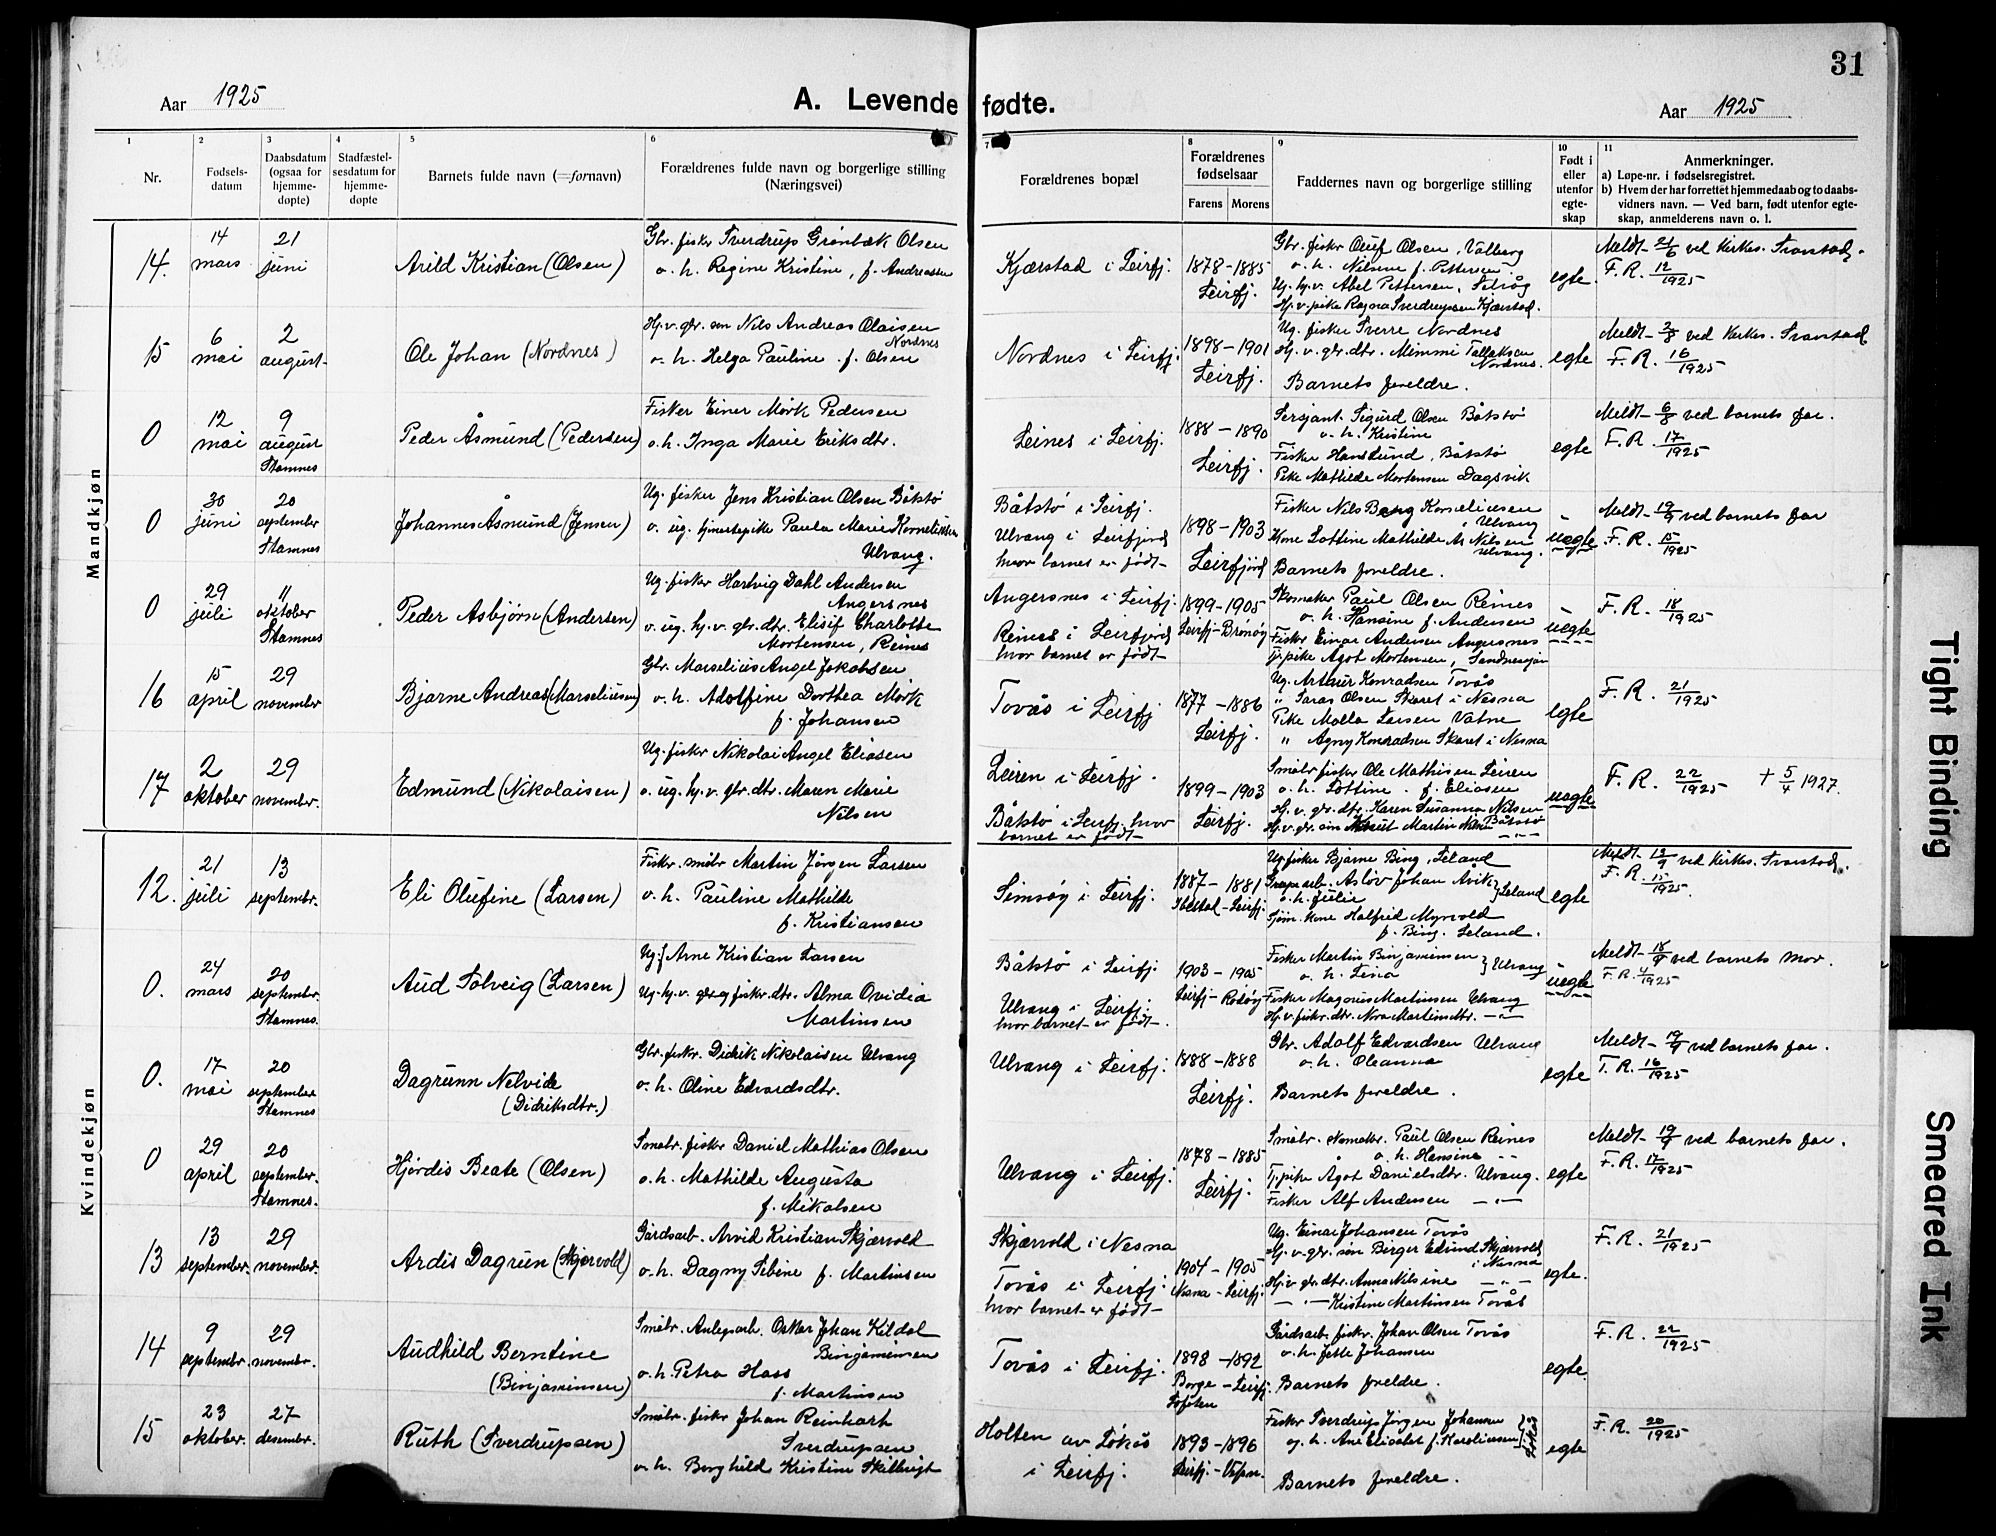 31
Aar 1925
A. Levende fødte.
Aar 1925
1
Nr.
2
Fødsels-
datum
3
Daabsdatum
(ogsaa for
hjemme-
døpte)
4
Stadfæstel-
sesdatum for
hjemme-
døpte
5
Barnets fulde navn (=fornavn)
6
Forældrenes fulde navn og borgerlige stilling
(Næringsvei)
7
Forældrenes bopæl
8
Forældrenes
fødselsaar
Farens Morens
9
Faddernes navn og borgerlige stilling
10
Født i
eller
utenfor
egte-
skap
11
Anmerkninger.
a) Løpe-nr. i fødselsregistret.
b) Hvem der har forrettet hjemmedaab og to daabs-
vidners navn. — Ved barn, født utenfor egte-
skap, anmelderens navn o. l.
Mandkjøn
14.
14
mars
21
juni
Arild Kristian (Olsen)
Gbr. fisker Sverdrup Grønbæk Olsen
o. h. Regine Kristine, f. Andreassen
Kjærstad i Leirfj.
1878 - 1885
Leirfj.
Gbr. fisker Oluf Olsen, Valberg
o. h. Nilsine f. Pettersen
Ug. hj.v. Abel Pettersen, Selvåg
Hj.v. pike Ragna Sverdrupsen Kjærstad.
egte.
Meldt 21/6 ved Kirkes. Travstad.
F. R. 12/1925
15
6
mai
2
august
Ole Johan (Nordnes)
Hj.v. gbr. søn Nils Andreas Olaisen
Nordnes
o. h. Helga Pauline f. Olsen
Nordnes i Leirfj.
1898 - 1901
Leirfj.
Ug. fisker Sverre Nordnes
Hj. v. gbr. dtr. Mimmi Tollaksen
Nordnes.
Barnets foreldre.
egte
Meldt 2/8 ved Kirkes. Travstad
F. R. 16/1925
0
12
mai
9
august
Stamnes
Peder Åsmund (Pedersen)
Fisker Einer Mørk Pedersen
o. h. Inga Marie Eriksdtr.
Leines i Leirfj.
1888 - 1890
Leirfj.
Sersjant Sigurd Olsen Båtstø
o. h. Kristine
Fisker Hans Lund, Båtstø
Pike Mathilde Mortensen Dagsvik
egte
Meldt 6/8 ved barnets far.
F. R. 17/1925
0
30
juni
20
september
Stamnes
Johannes Åsmund (Jensen)
Ug. fisker Jens Kristian Olsen Båtstø
o. ug. tjenestepike Paula Marie Korneliussen
Ulvang.
Båtstø i Leirfj.
Ulvang i Leirfjord
hvor barnet er født
1898 - 1903
Leirfjord
Fisker Nils Berg Korneliussen
Ulvang
Kone Lottine Mathilde M. Nilsen
Ulvang.
Barnets foreldre.
uegte
Meldt 19/9 ved barnets far
F. R. 15/1925
0
29
juli
11
oktober
Stamnes
Peder Asbjørn (Andersen)
Ug. fisker Hartvig Dahl Andersen
Angersnes
o. ug. hj. v. gbr. dtr. Elisif Charlotte
Mortensen, Reines
Angersnes i Leirfj.
Reines i Leirfjord
hvor barnet er født
1899 - 1905
Leirfj - Brønøy
Skomaker Paul Olsen Reines
o. h. Hansine f. Andersen
Fisker Einar Andersen Angersnes
Tj. pike Ågot Mortensen, Sandnessjøen
uegte
F. R. 18/1925
16
15
april
29
november
Bjarne Andreas (Marseliussen)
Gbr. Marselius Angel Jakobsen
o. h. Adolfine Dorthea Mørk
f. Johansen
Tovås i Leirfj
1877 - 1886
Leirfj.
Ug. Arthur Konradsen Tovås
" Saras Olsen Skaret i Nesna
Pike Molla Larsen Vatne
" Agny Konradsen Skaret i Nesna
egte
F. R. 21/1925
17
2
oktober
29
november.
Edmund (Nikolaisen)
Ug. fisker Nikolai Angel Eliasen
o. ug. hj. v. gbr. dtr. Maren Marie
Nilsen
Leiren i Leirfj.
Båtstø i Leirfj. hvor
barnet er født
1899 - 1903
Leirfj.
Småbr. fisker Ole Mathisen Leiren
o. h. Lottine f. Eliasen
Hj. v. gbr. dtr. Karen Susanna Nilsen
Båtstø
Hj. v. gbr. søn Knut Martin Nilsen
uegte
F. R. 22/1925 + 5/4 1927.
Kvindekjøn
12.
21
juli
13
septembr.
Eli Olufine (Larsen)
Fisker. småbr Martin Jørgen Larsen
o. h. Pauline Mathilde
f. Kristiansen
Simsøy i Leirfj.
1887 - 1881
Ibestad - Leirfj.
Ug. fisker Bjarne Bing, Leland
Grupearb. Asløv Johan Avik
o. h. Julie } Leland
Tjøm. kone Halfrid Myrvold
f. Bing. Leland.
egte
Meldt 12/9 ved Kirkes. Travstad.
F. R. 15/1925
0.
24
mars
20
september.
Stamnes.
Aud Solveig (Larsen)
Ug. f Arne Kristian Larsen
Ug. hj. v. gbr. og fisker. dtr. Alma Ovidia
Martinsen
Båtstø i Leirfj.
Ulvang i Leirfj.
hvor barnet er født.
1903 - 1905
Leirfj - Rødøy
Fisker Martin Binjaminsen
o. h. Lina } Ulvang
Fisker Magnus Martinsen Ulvang
Hj. v. fisker. dtr. Nora Martinsdtr.
uegte
Meldt 18/9 ved barnets mor.
F. R. 4/1925
0.
17
mai
20
september
Stamnes
Dagrunn Nelvide
(Didriksdtr.)
Gbr. fisker. Didrik Nikolaisen Ulvang
o. h. Oline Edvardsdtr.
Ulvang i Leirfj.
1888 - 1888
Leirfj.
Gbr. Adolf Edvardsen Ulvang
o. h. Oleanna
Barnets foreldre.
egte
Meldt 19/9 ved barnets far.
F. R. 16/1925
0
29
april
20
september.
Stamnes.
Hjørdis Beate (Olsen)
Småbr. fisker Daniel Mathias Olsen
o. h. Mathilde Augusta
f. Mikalsen
Ulvang i Leirfj.
1878 - 1885
Leirfj.
Småbr. skomaker. Paul Olsen Reines
o. h. Hansine
Tj. pike Ågot Danielsdtr. Ulvang.
Fisker Alf Andersen
egte
Meldt 19/9 ved barnets far.
F. R. 17/1925
13
13
september.
29
november.
Ardis Dagrun (Skjærvold)
Gårdsarb. Arvid Kristian Skjærvold
o. h. Dagny Sibine f. Martinsen
Skjærvold i Nesna
Tovås i Leirfj.
hvor barnet er født
1904 - 1905
Nesna - Leirfj.
Ug. Einar Johansen Tovås
Hj. v. gbr. søn Birger Edund Skjærvold
i Nesna
Hj. v. gbr. dtr. Anna Nilsine
Kristine Martinsen Tovås
egte.
F. R. 21/1925
14
9
septembr.
29
novembr.
Audhild Berntine
(Binjaminsen)
Småbr. Anlegsarb. Oskar Johan Kildal
Binjaminsen
o. h. Petra Hass
f. Martinsen
Tovås i Leirfj.
1898 - 1892
Borge - Leirfj.
Lofoten
Gårdsarb. fisker. Johan Olsen Tovås
o. h. Jette Johansen
Barnets foreldre.
egte.
F. R. 22/1925
15
23
oktober.
27
desembr.
Ruth (Sverdrupsen)
Småbr. fisker Johan Reinhart
Sverdrupsen
o. h. Borghild Kristine Skillingt
Holten av Løkås
i Leirfj.
1893 - 1896
Leirfj. - Vefsn.
Fisker Sverdrup Jørgen Johansen
og. h. Ane Elisabet f. Karoliussen } Løkås
Barnets foreldre.
egte
F. R. 20/1925
Tight Binding
Smeared Ink